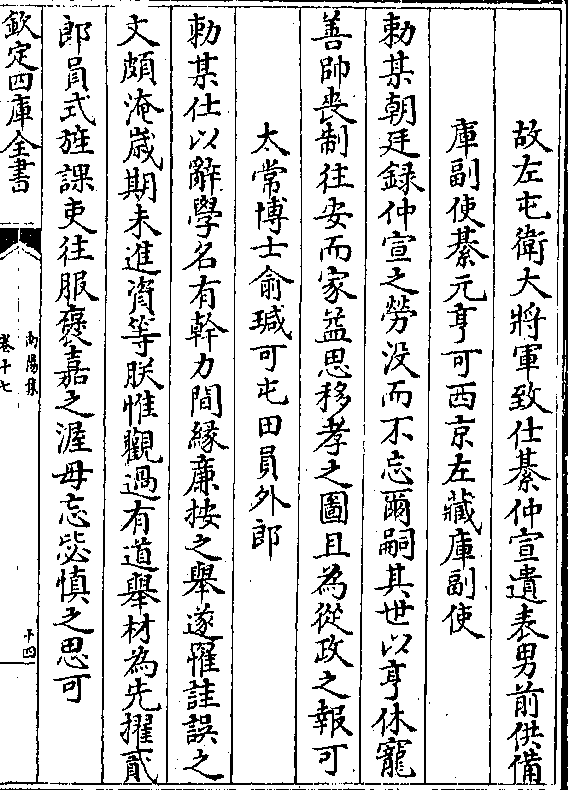 故左屯衛大將軍致仕綦仲宣遺表男前供備
庫副使綦元亨可西京左藏庫副使
勅某朝廷録仲宣之勞没而不忘爾嗣其世以亨休寵
善帥喪制往安而家益思移孝之圖且為從政之報可
太常博士俞瑊可屯田員外郎
勅某仕以辭學名有幹力間縁亷按之舉遂罹註誤之
文頗淹歲期未進資等朕惟觀過有道舉材為先擢貳
郎員式旌課吏往服褒嘉之渥毋忘毖慎之思可
欽定四庫全書
南陽集
卷十七
十四